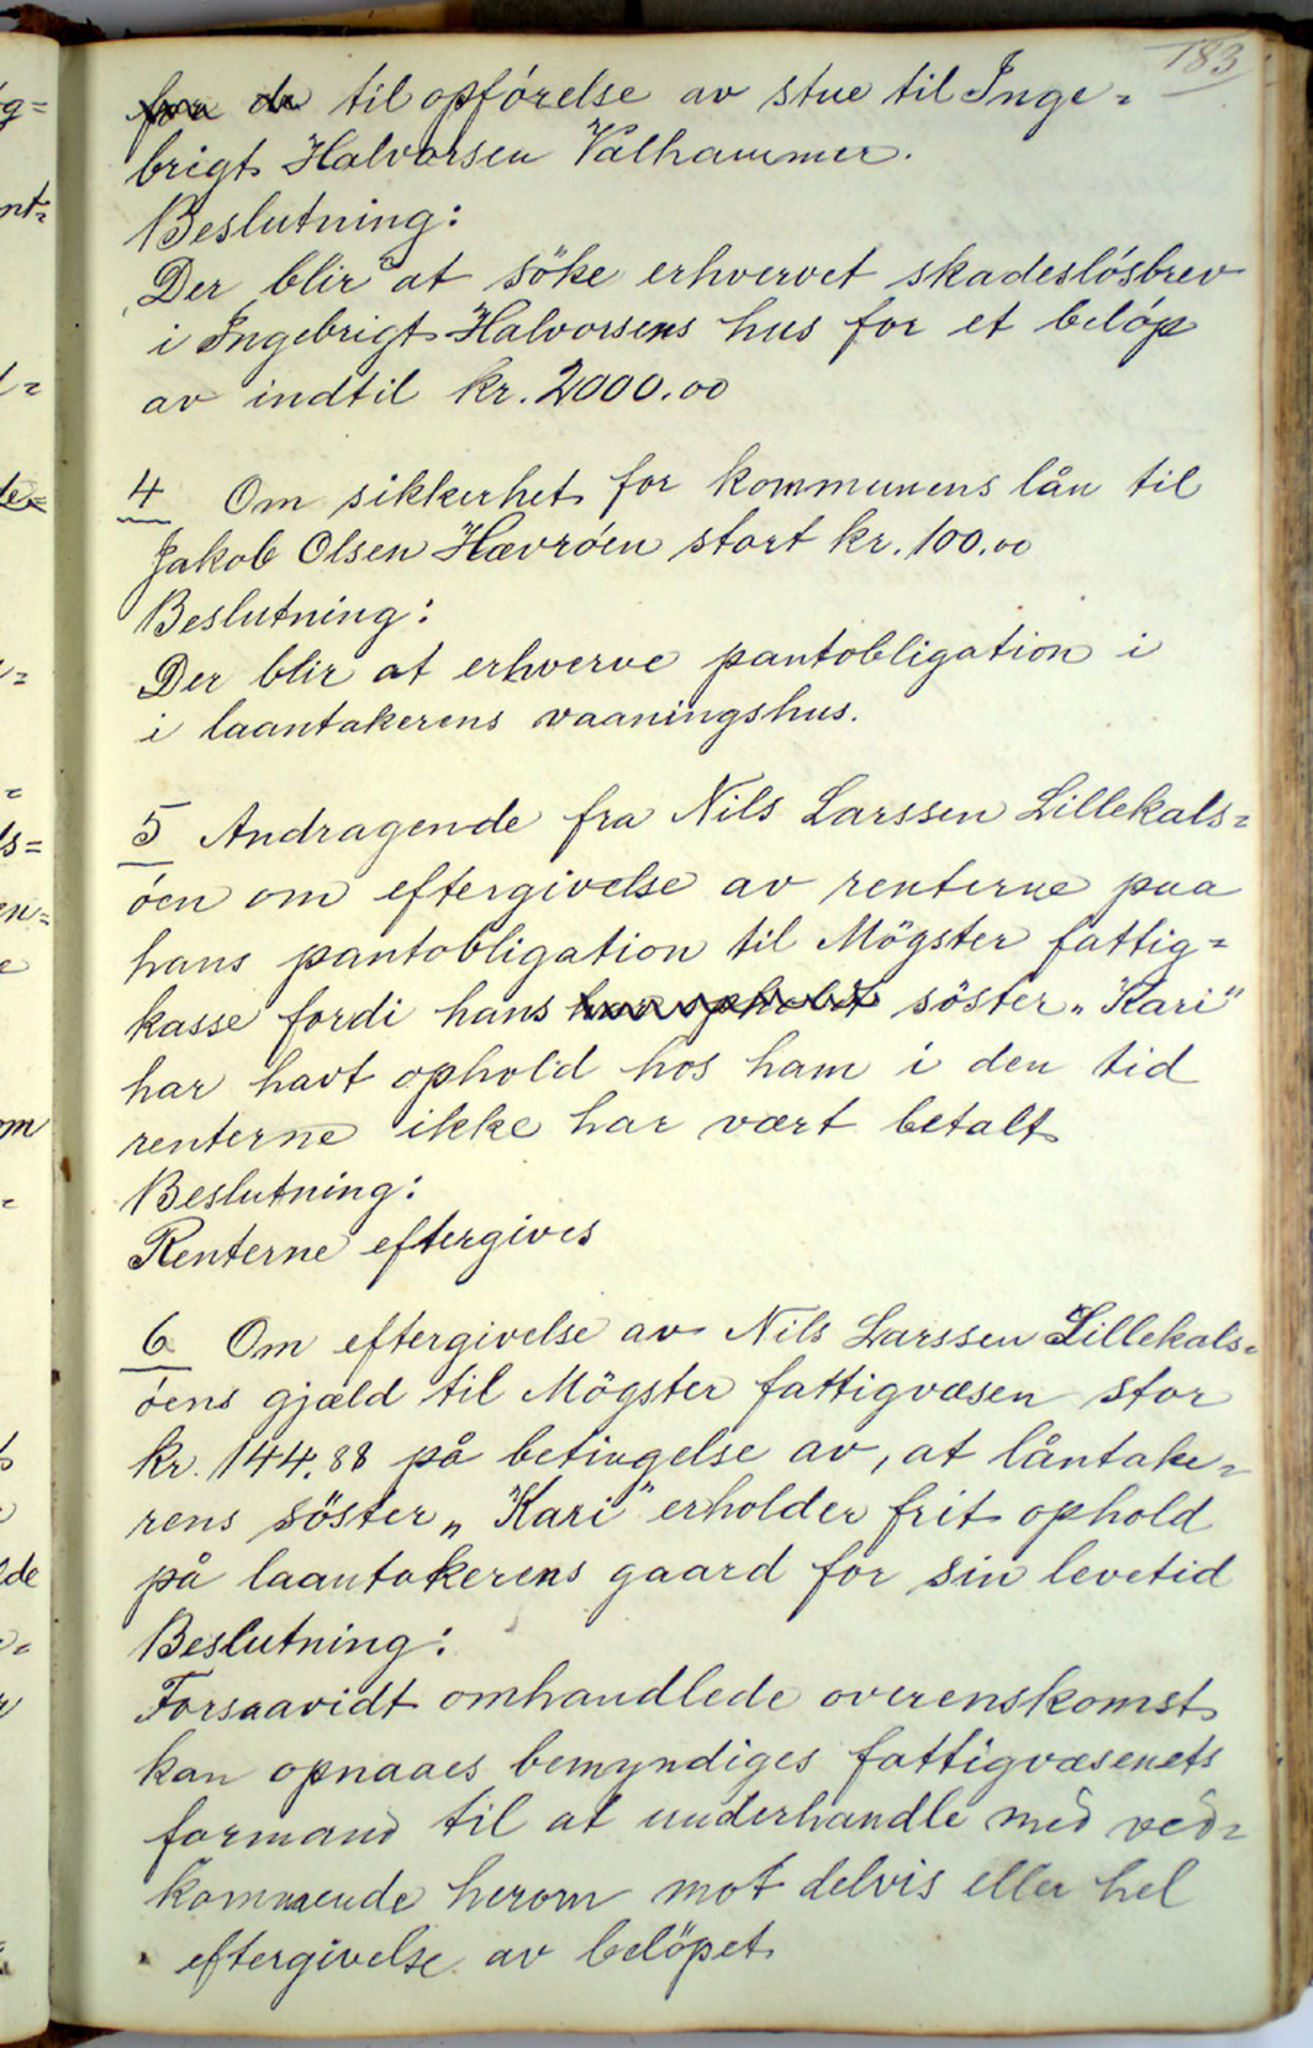 183
~~fra~~ ~~de~~ til opförelse av stue til Inge=
brigt Halvorsen Valhammer.
Beslutning:
Der blir at söke erhvervet skadeslösbrev
i Ingebrigt Halvorsens hus for et belöp
av indtil kr. 2000.00
4 Om sikkerhet for kommunens lån til
Jakob Olsen Hævröen stort kr. 100.00
Beslutning:
Der blir at erhverve pantobligation i
i laantakerens vaaningshus.
5 Andragende fra Nils Larssen Lillekals=
öen om eftergivelse av renterne paa
hans pantobligation til Mögster fattig=
kasse fordi hans ~~har ophold~~ söster „Kari"
har havt ophold hos ham i den tid
renterne ikke har vært betalt
Beslutning:
Renterne eftergives
6 Om eftergivelse av Nils Larssen Lillekals=
öens gjæld til Mögster fattigvæsen stor
kr. 144.88 på betingelse av, at låntake=
rens söster „Kari" erholder frit ophold
på laantakerens gaard for sin levetid
Beslutning:
Forsaavidt omhandlede overenskomst
kan opnaaes bemyndiges fattigvæsenets
formand til at underhandle med ved=
kommende herom mot delvis eller hel
eftergivelse av belöpet